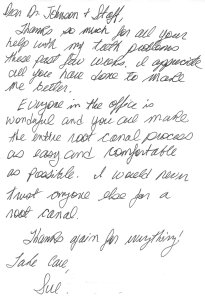 Dear Dr. Johnson & Staff,
Thanks so much for all your
help with my tooth problems
these past few weeks. I appreciate
all you have done to make
me better.
Everyone in the office is
wonderful and you all make
the entire root canal process
as easy and comfortable
as possible. I would never
trust anyone else for a
root canal.
Thanks again for everything!
Take Care,
Sue